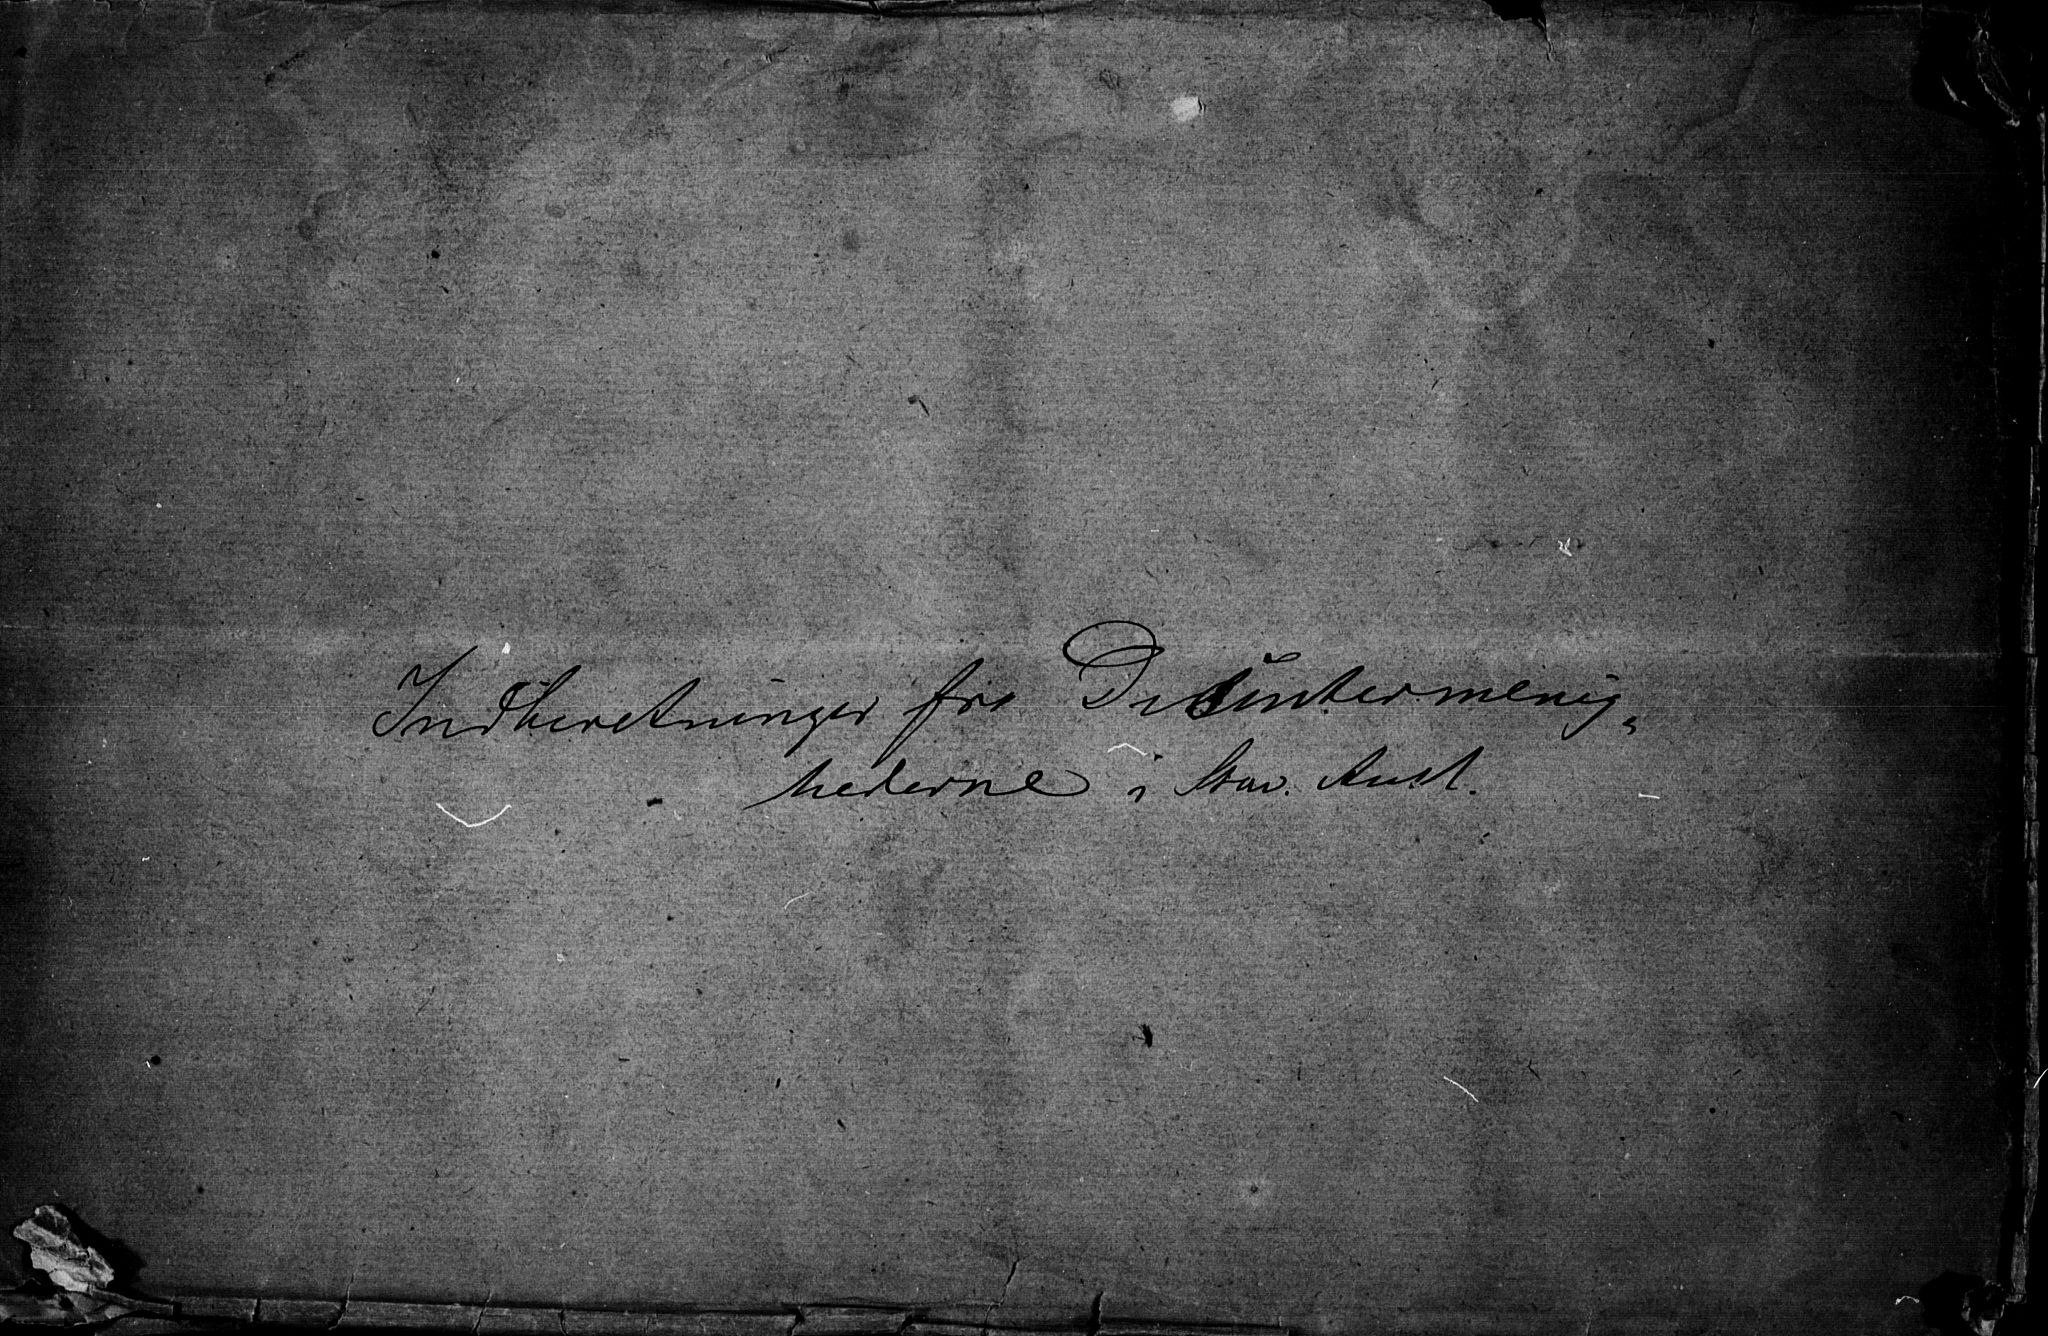 Indberetninger fra Dissentermenig-
hederne i Stav. Amt.